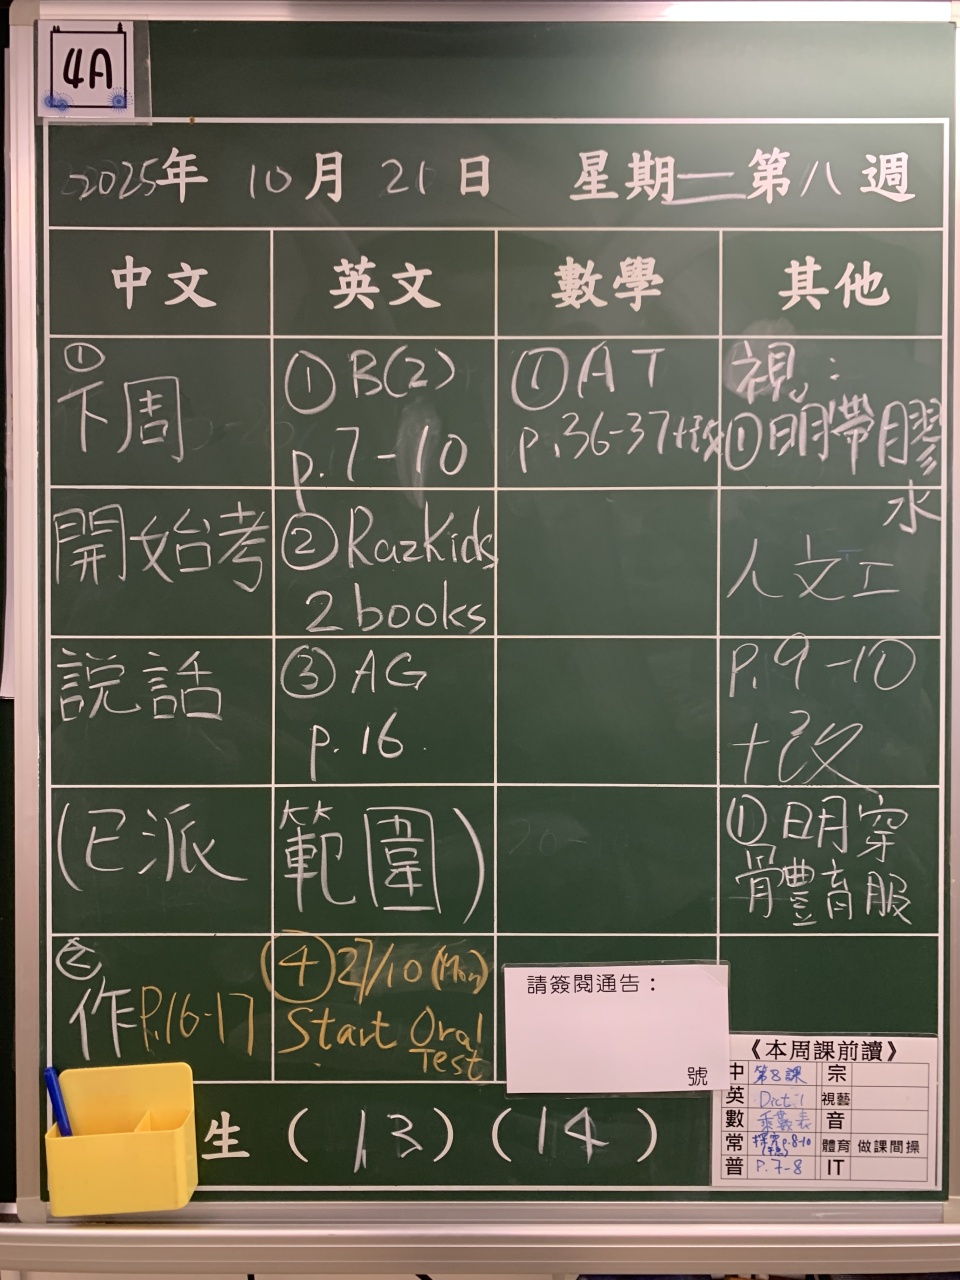 4A
2025年 10月 21日 星期一 第八週
中文 英文 數學 其他
①
下周
開始考
說話
(已派 範圍)
②
作P.16-17
① B(2)
p.7-10
② RazKids
2 books
③ AG
p.16.
④ 27/10 (Mon)
Start Oral
Test
① AT
p.36-37+改
視:
①明帶膠
水
人文工
P.9-10
+改
①明穿
體育服
請簽閱通告：
號
生 (13) (14)
《本周課前讀》
中 第8課 宗
英 Dict.1 視藝
數 乘數表 音
常 探究p.8-10 體育 做課間操
普 P.7-8 IT